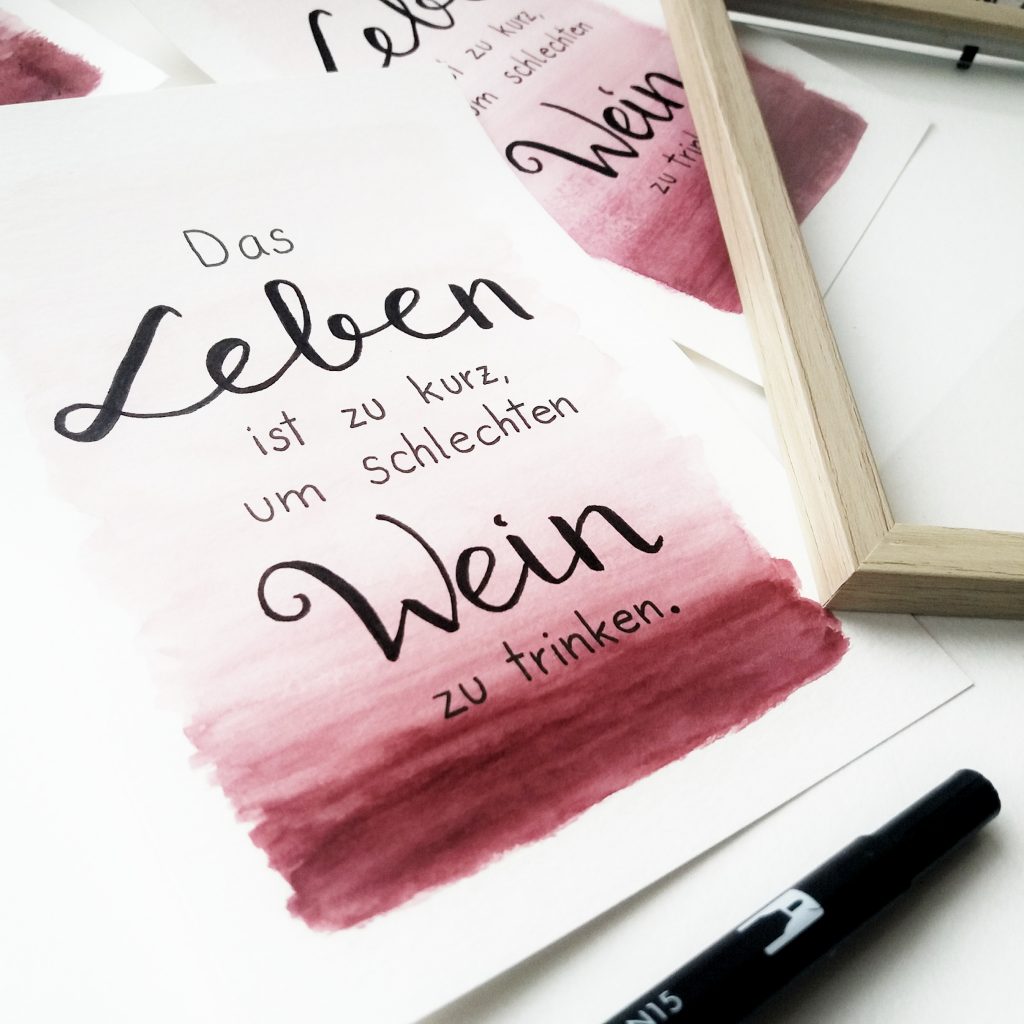 Das
Leben
ist zu kurz,
um schlechten
Wein
zu trinken.
Leben
zu kurz,
um schlechten
Wein
zu
N15